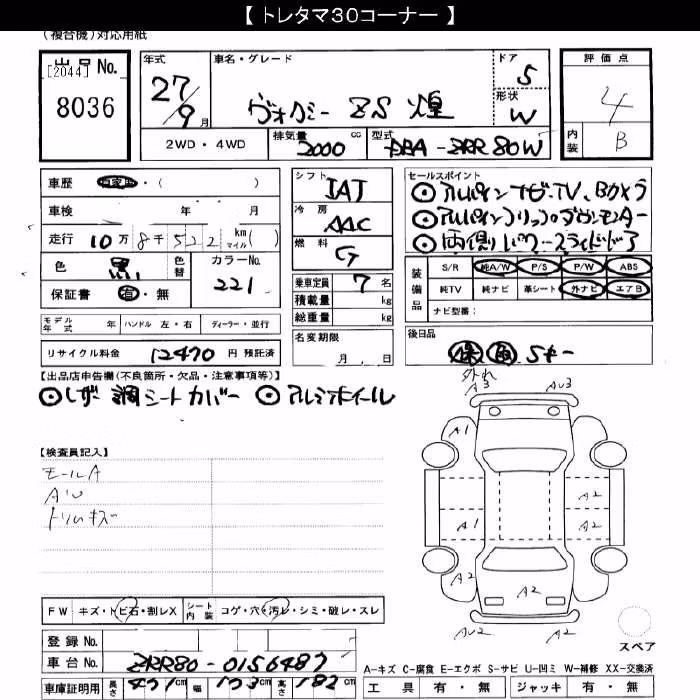 【 トレタマ30コーナー 】
(複合機)対応用紙
出品No.
[2044]
8036
年式
27/9月
車名・グレード
ヴォクシー ZS 煌
ドア
5
形状
W
評価点
4
内装
B
2WD・4WD
排気量
2000 cc
型式
DBA-ZRR80W
車歴
自家用・( )
車検 年 月
走行 10万8千522 km マイル( )
色 黒 色替
カラーNo.
221
保証書 有・無
シフト
IAT
冷房
AAC
燃料
G
乗車定員 7 名
積載量 kg
総重量 kg
セールスポイント
◎アルパインナビ、TV、Bカメラ
◎アルパインフリップダウンモニター
◎両側パワースライドドア
装備品
S/R 純A/W P/S P/W ABS
純TV 純ナビ 革シート 外ナビ エアB
ナビ型番:
モデル年式 年 ハンドル 左・右 ディーラー・並行
リサイクル料金 12470 円 預託済
名変期限
月 日
後日品
保 取 Sキー
【出品店申告欄(不良箇所・欠品・注意事項等)】
◎レザー調シートカバー ◎アルミホイール
【検査員記入】
モールA
AU
トリムキズ
外れ
A3
AU3
A1
A2
A1
A2
A2
A2
A2
AU2
A2
FW キズ・トビ石・割レX
シート内装 コゲ・穴・汚レ・シミ・破レ・スレ
登録No.
車台No. ZRR80-0156487
車庫証明用 長さ 471cm 幅 173cm 高さ 182cm
スペア
A-キズ C-腐食 E-エクボ S-サビ U-凹ミ W-補修 XX-交換済
工具 有・無 ジャッキ 有・無